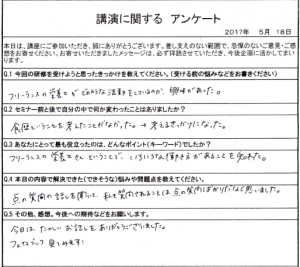 講演に関する アンケート
2017年 5月 18日
本日は、講座にご参加いただき、誠にありがとうございます。差し支えのない範囲で、忌憚のないご意見・ご感
想をお寄せください。お寄せいただきましたメッセージは、必ず拝読させていただき、今後企画に活かしてまい
ります。
Q.1 今回の研修を受けようと思ったきっかけを教えてください。(受ける前の悩みなどをお書きください)
フリーランスの栄養士がどのような活動をしているのか、興味があった。
Q.2 セミナー前と後で自分の中で何か変わったことはありましたか？
食歴ということを考えたことがなかった。→考えるきっかけになった。
Q.3 あなたにとって最も役立ったのは、どんなポイント(キーワード)でしたか？
フリーランスの栄養士さんということで、いろいろな働き方があることを知れた。
Q.4 本日の内容で解決できた(できそうな)悩みや問題点を教えてください。
点の質問の話しを聞いて、私も質問されることは点の質問ばかりだなと思いました。
Q.5 その他、感想、今後への期待などをお願いします。
今日は たのしいお話しをありがとうございました。
フェイスブック 見てみます！